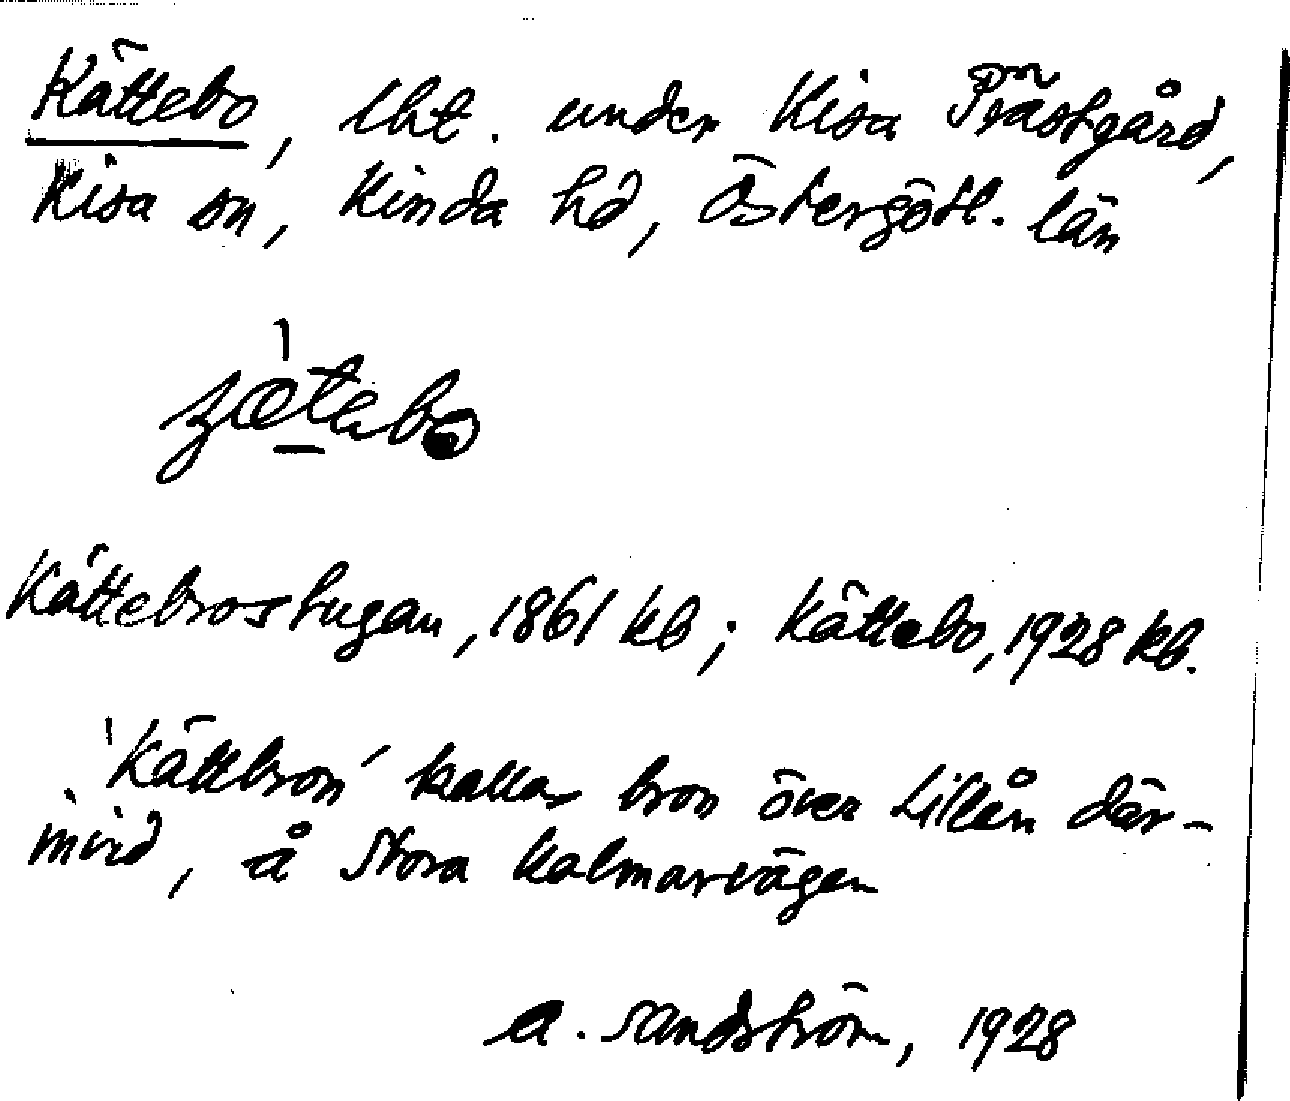 Kättebo, lht. under Kisa Prästgård,
Kisa sn, Kinda hd, Östergötl. län
Kättebrostugan, 1861 kb; Kättebo, 1928 kb.
'Kättbron' kallas bron över Lillån där-
invid, å Stora Kalmarvägen
A. Sandström, 1928